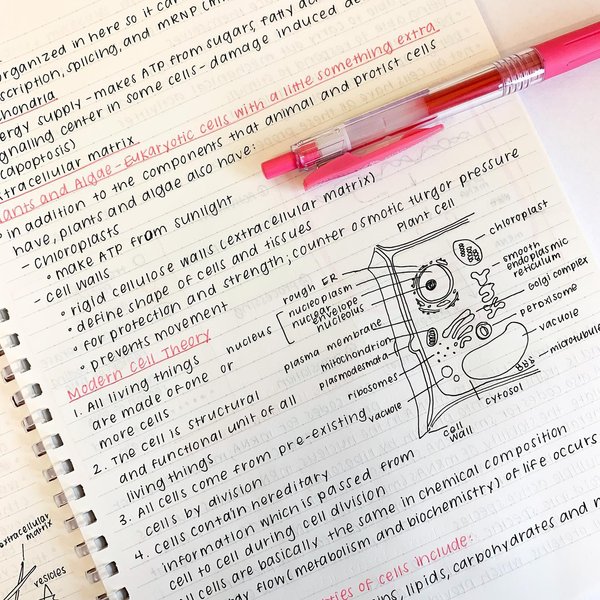 organized in here so it can
scription, splicing, and mRNP
chondria
ergy supply - makes ATP from sugars fatty
ignaling center in some cells - damage induced
(apoptosis)
xtracellular matrix
lants and Algae - Eukaryotic cells with a little something extra
in addition to the components that animal and protist cells
have, plants and algae also have:
- chloroplasts
° make ATP from sunlight
- cell walls
° rigid cellulose walls (extracellular matrix)
° define shape of cells and tissues
° for protection and strength; counter osmotic turgor pressure
° prevents movement
Modern Cell Theory
1. All living things
are made of one or
more cells
2. The cell is structural
and functional unit of all
living things
3. All cells come from pre-existing
cells by division
4. cells contain hereditary
information which is passed from
cell to cell during cell division
cells are basically the same in chemical composition
flow (metabolism and biochemistry) of life occurs
ties of cells include:
ins, lipids, carbohydrates and
Plant cell
nucleus
rough ER
nucleoplasm
nuclear envelope
nucleolous
plasma membrane
mitochondrion
plasmodesmata
ribosomes
vacuole
cell
wall
chloroplast
smooth
endoplasmic
reticulum
Golgi complex
peroxisome
vacuole
microtubule
cytosol
extracellular
matrix
vesicles